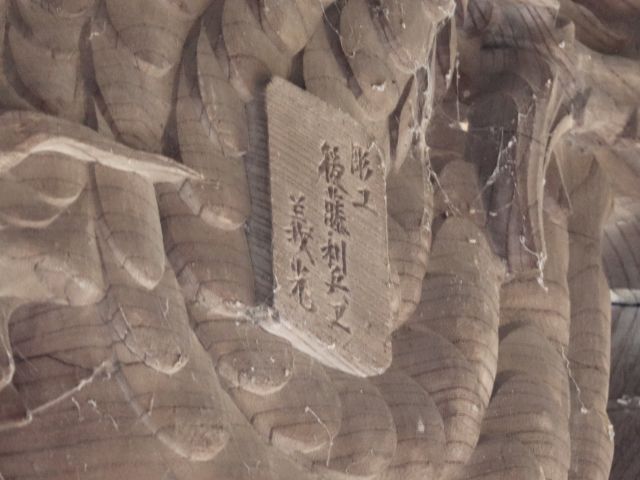 彫工
後藤利兵衛
義光